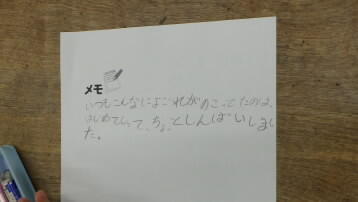 メモ
いつもこんなによごれがのこってたのは、
はじめてしって、ちょっとしんぱいしまし
た。